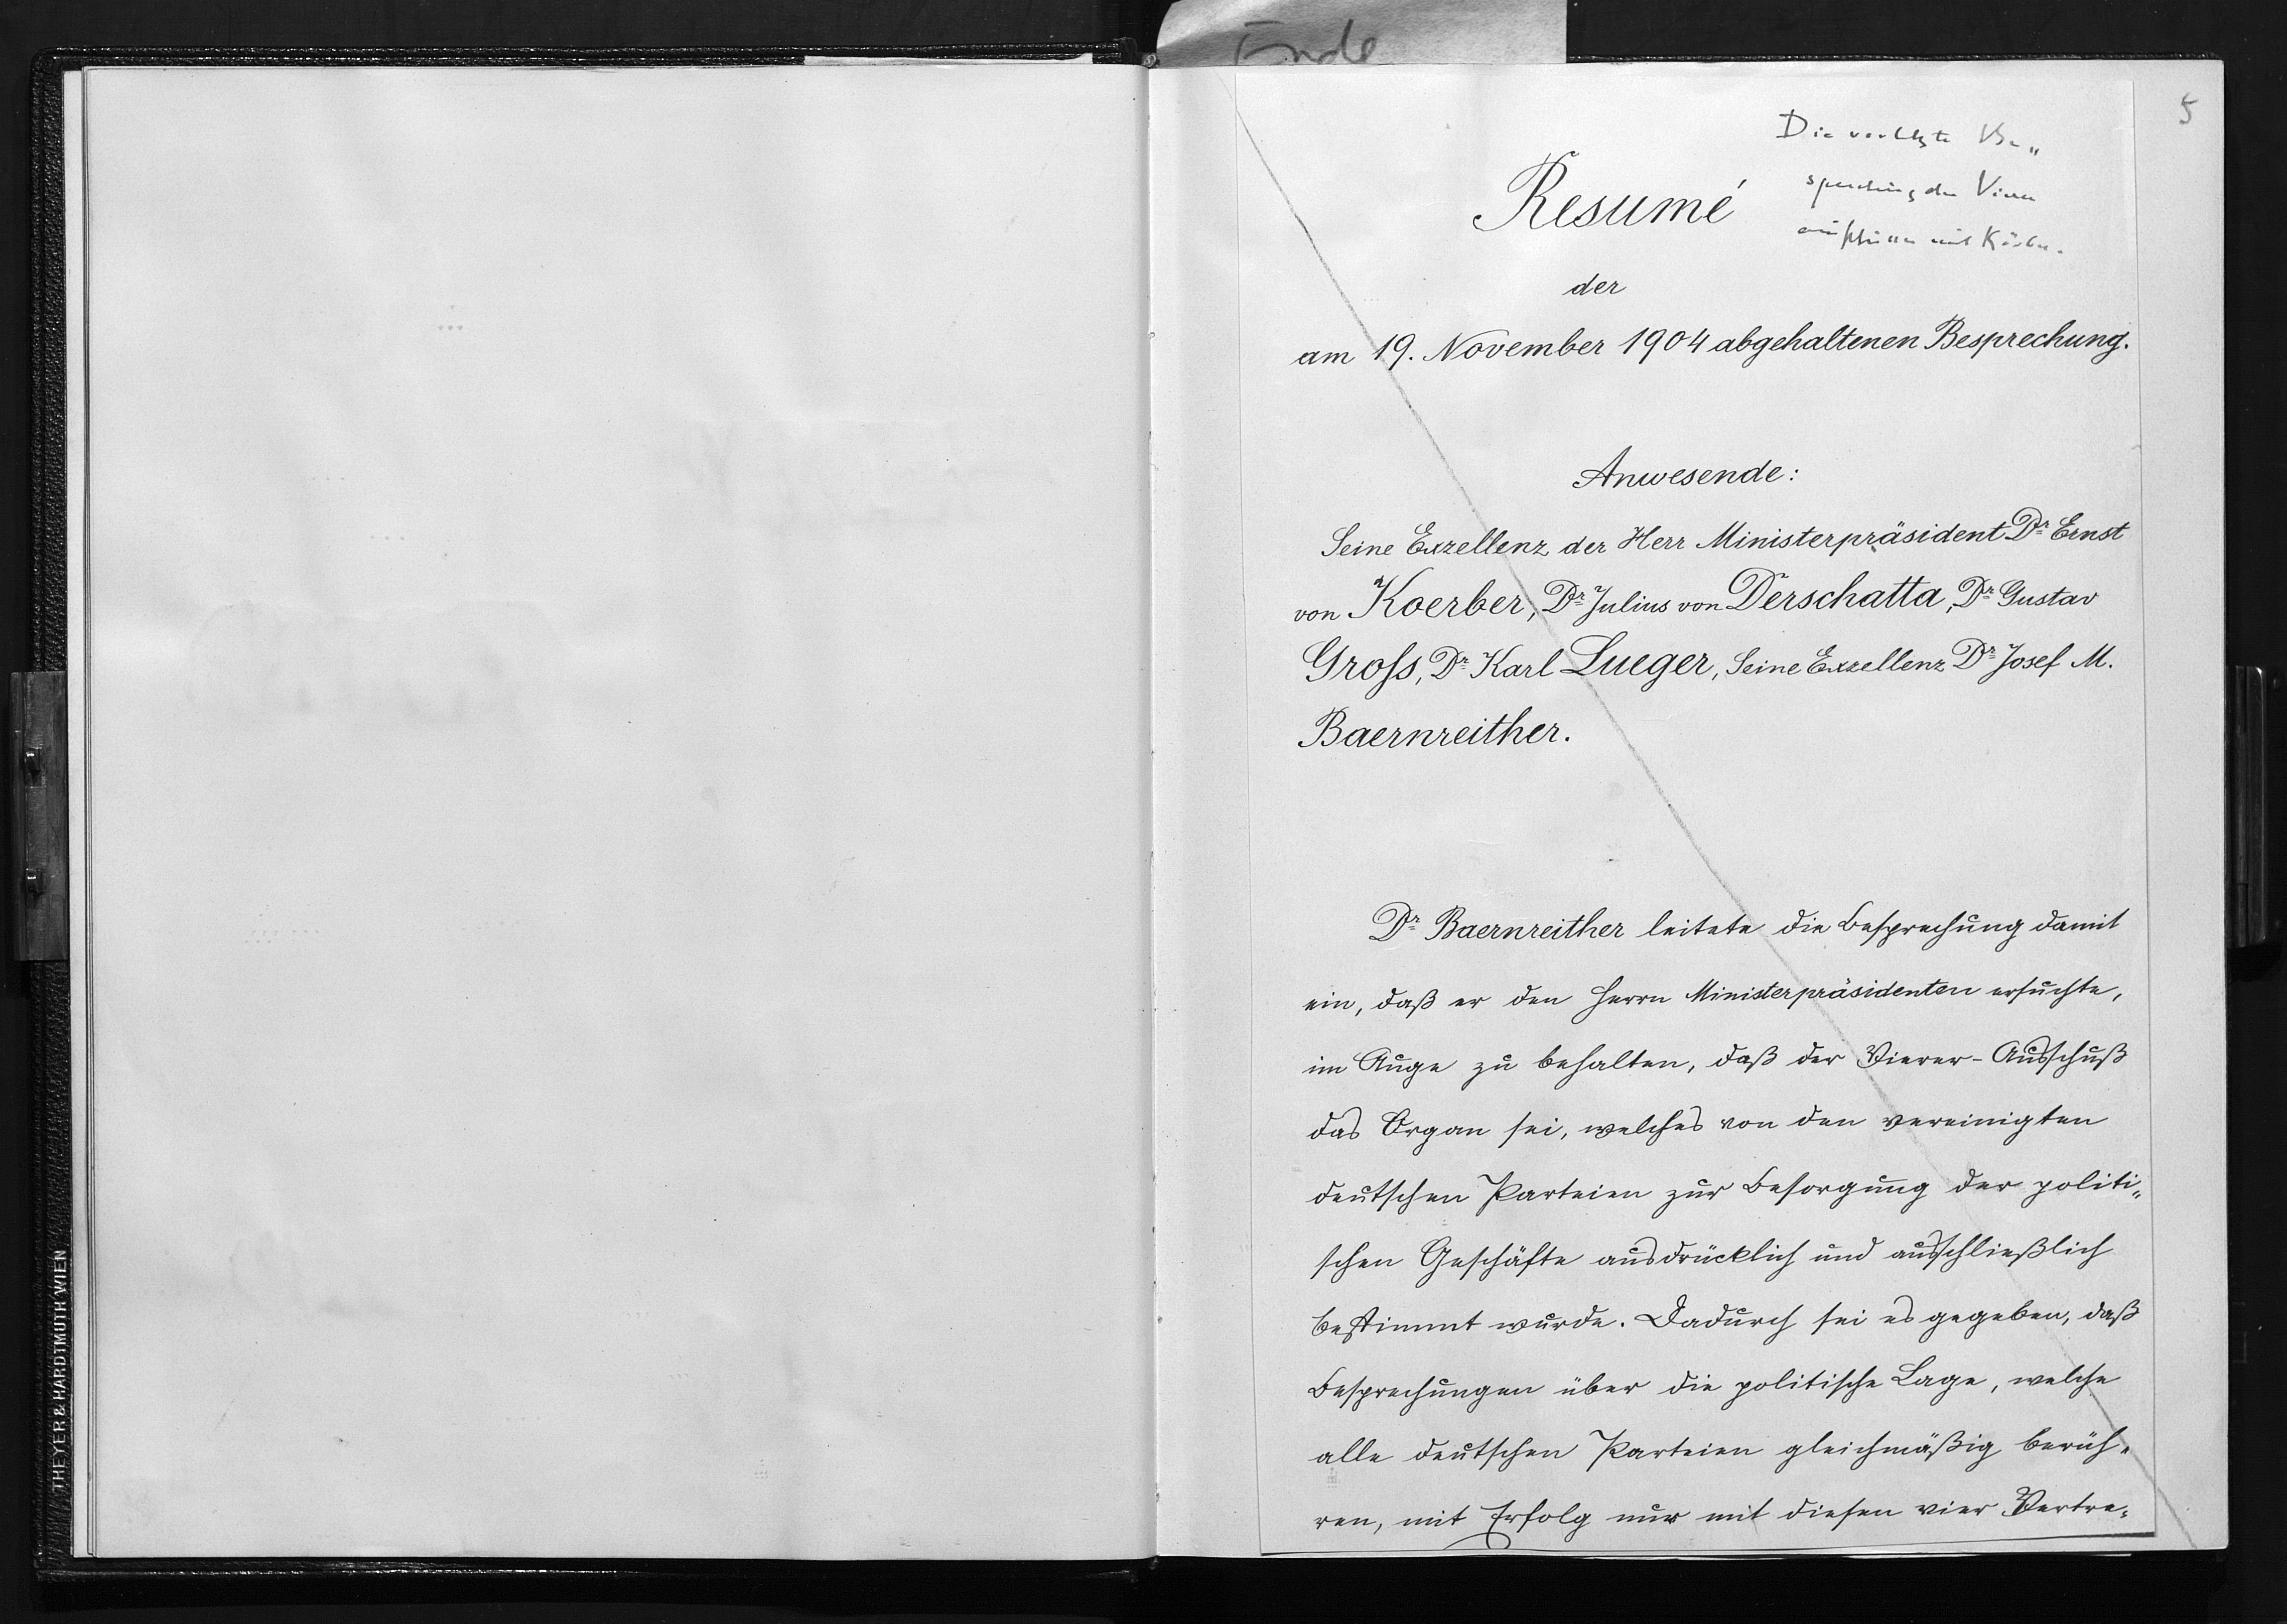 Ende
5
Die vorletzte Be„
sprechung der Vierer
mit Körber.
Resumé
der
am 19. November 1904 abgehaltenen Besprechung.
Anwesende:
Seine Exzellenz der Herr Ministerpräsident Dr Ernst
von Koerber, Dr Julius von Derschatta, Dr Gustav
Groſs, Dr Karl Lueger, Seine Exzellenz Dr Josef M.
Baernreither.
Dr Baernreither leitete die Besprechung damit
ein, daß er den Herrn Ministerpräsidenten ersuchte,
im Auge zu behalten, daß der Vierer-Ausschuß
das Organ sei, welches von den vereinigten
deutschen Parteien zur Besorgung der politi„
schen Geschäfte ausdrücklich und ausschließlich
bestimmt wurde. Dadurch sei es gegeben, daß
Besprechungen über die politische Lage, welche
alle deutschen Parteien gleichmäßig berüh„
ren, mit Erfolg nur mit diesen vier Vertre„
THEYER & HARDTMUTH WIEN